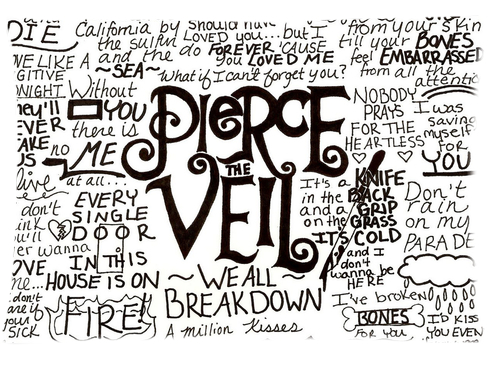 DIE
California by
the sulfur
and the do
~SEA~
should have
LOVED you...but I
FOREVER 'CAUSE
You LOVED ME
what if I can't forget you?
from your skin
till your BONES
feel EMBARRASSED
from all the
attention
WE LIKE A
GITIVE
NIGHT
Without
YOU
there is
no ME
at all...
They'll
EVER
AKE
US
live
PIERCE
THE
VEIL
NOBODY
PRAYS
FOR THE
HEARTLESS
I was
saving
myself
for
YOU
It's a KNIFE
in the BACK
and a GRIP
on the GRASS
IT'S COLD
and I
don't
wanna be
HERE
Don't
rain
on my
PARADE
don't
ink
u'll
er wanna
OVE
me...
EVERY
SINGLE
DOOR
IN THIS
HOUSE IS ON
FIRE!
don't
are if
your
SICK
~WE ALL~
BREAKDOWN
A million Kisses
I've broken
BONES
FOR YOU
I'D KISS
YOU EVEN